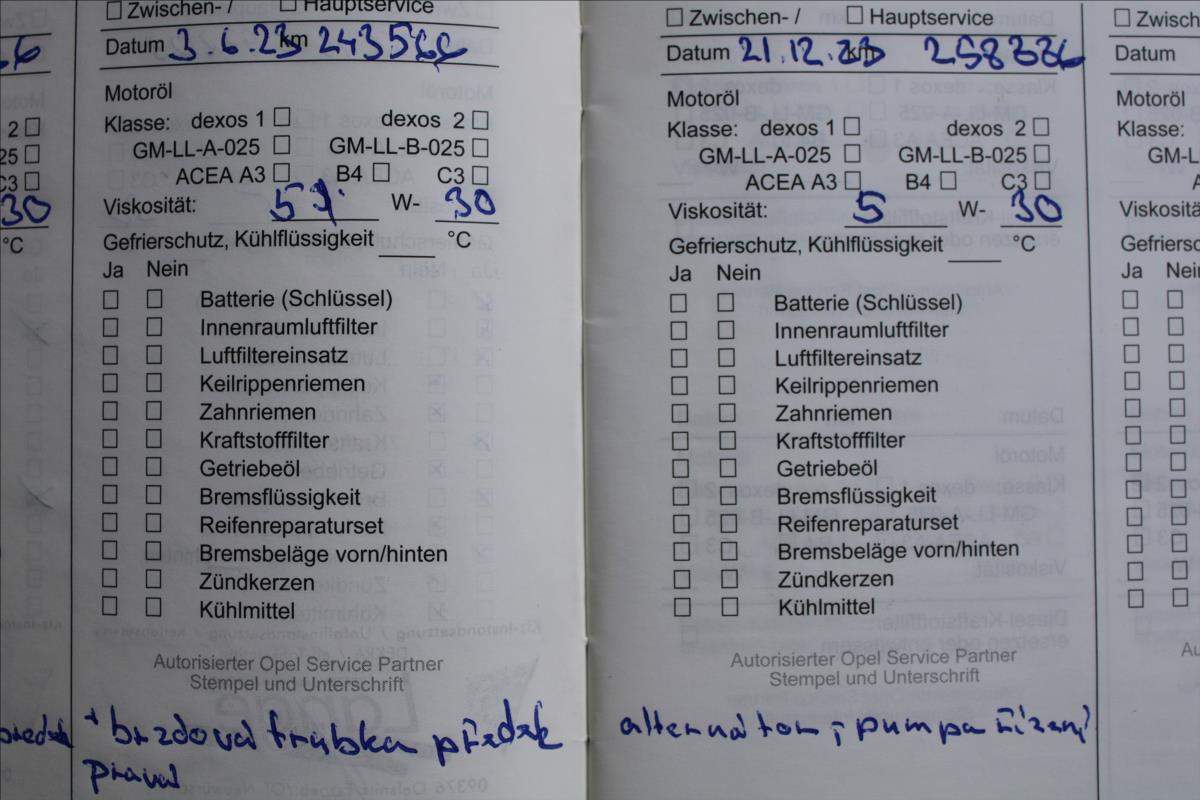 Zwischen- / Hauptservice
Datum 3.6.23 km 243566
Motoröl
Klasse: dexos 1 dexos 2
GM-LL-A-025 GM-LL-B-025
ACEA A3 B4 C3
Viskosität: 5 W- 30
Gefrierschutz, Kühlflüssigkeit °C
Ja Nein
Batterie (Schlüssel)
Innenraumluftfilter
Luftfiltereinsatz
Keilrippenriemen
Zahnriemen
Kraftstofffilter
Getriebeöl
Bremsflüssigkeit
Reifenreparaturset
Bremsbeläge vorn/hinten
Zündkerzen
Kühlmittel
Autorisierter Opel Service Partner
Stempel und Unterschrift
+ brzdová trubka předek
pravá
Zwischen- / Hauptservice
Datum 21.12.23 km 258386
Motoröl
Klasse: dexos 1 dexos 2
GM-LL-A-025 GM-LL-B-025
ACEA A3 B4 C3
Viskosität: 5 W- 30
Gefrierschutz, Kühlflüssigkeit °C
Ja Nein
Batterie (Schlüssel)
Innenraumluftfilter
Luftfiltereinsatz
Keilrippenriemen
Zahnriemen
Kraftstofffilter
Getriebeöl
Bremsflüssigkeit
Reifenreparaturset
Bremsbeläge vorn/hinten
Zündkerzen
Kühlmittel
Autorisierter Opel Service Partner
Stempel und Unterschrift
alternátor, pumpa řízení
2
25
C3
30
°C
Datum
Motoröl
Klasse:
Ja